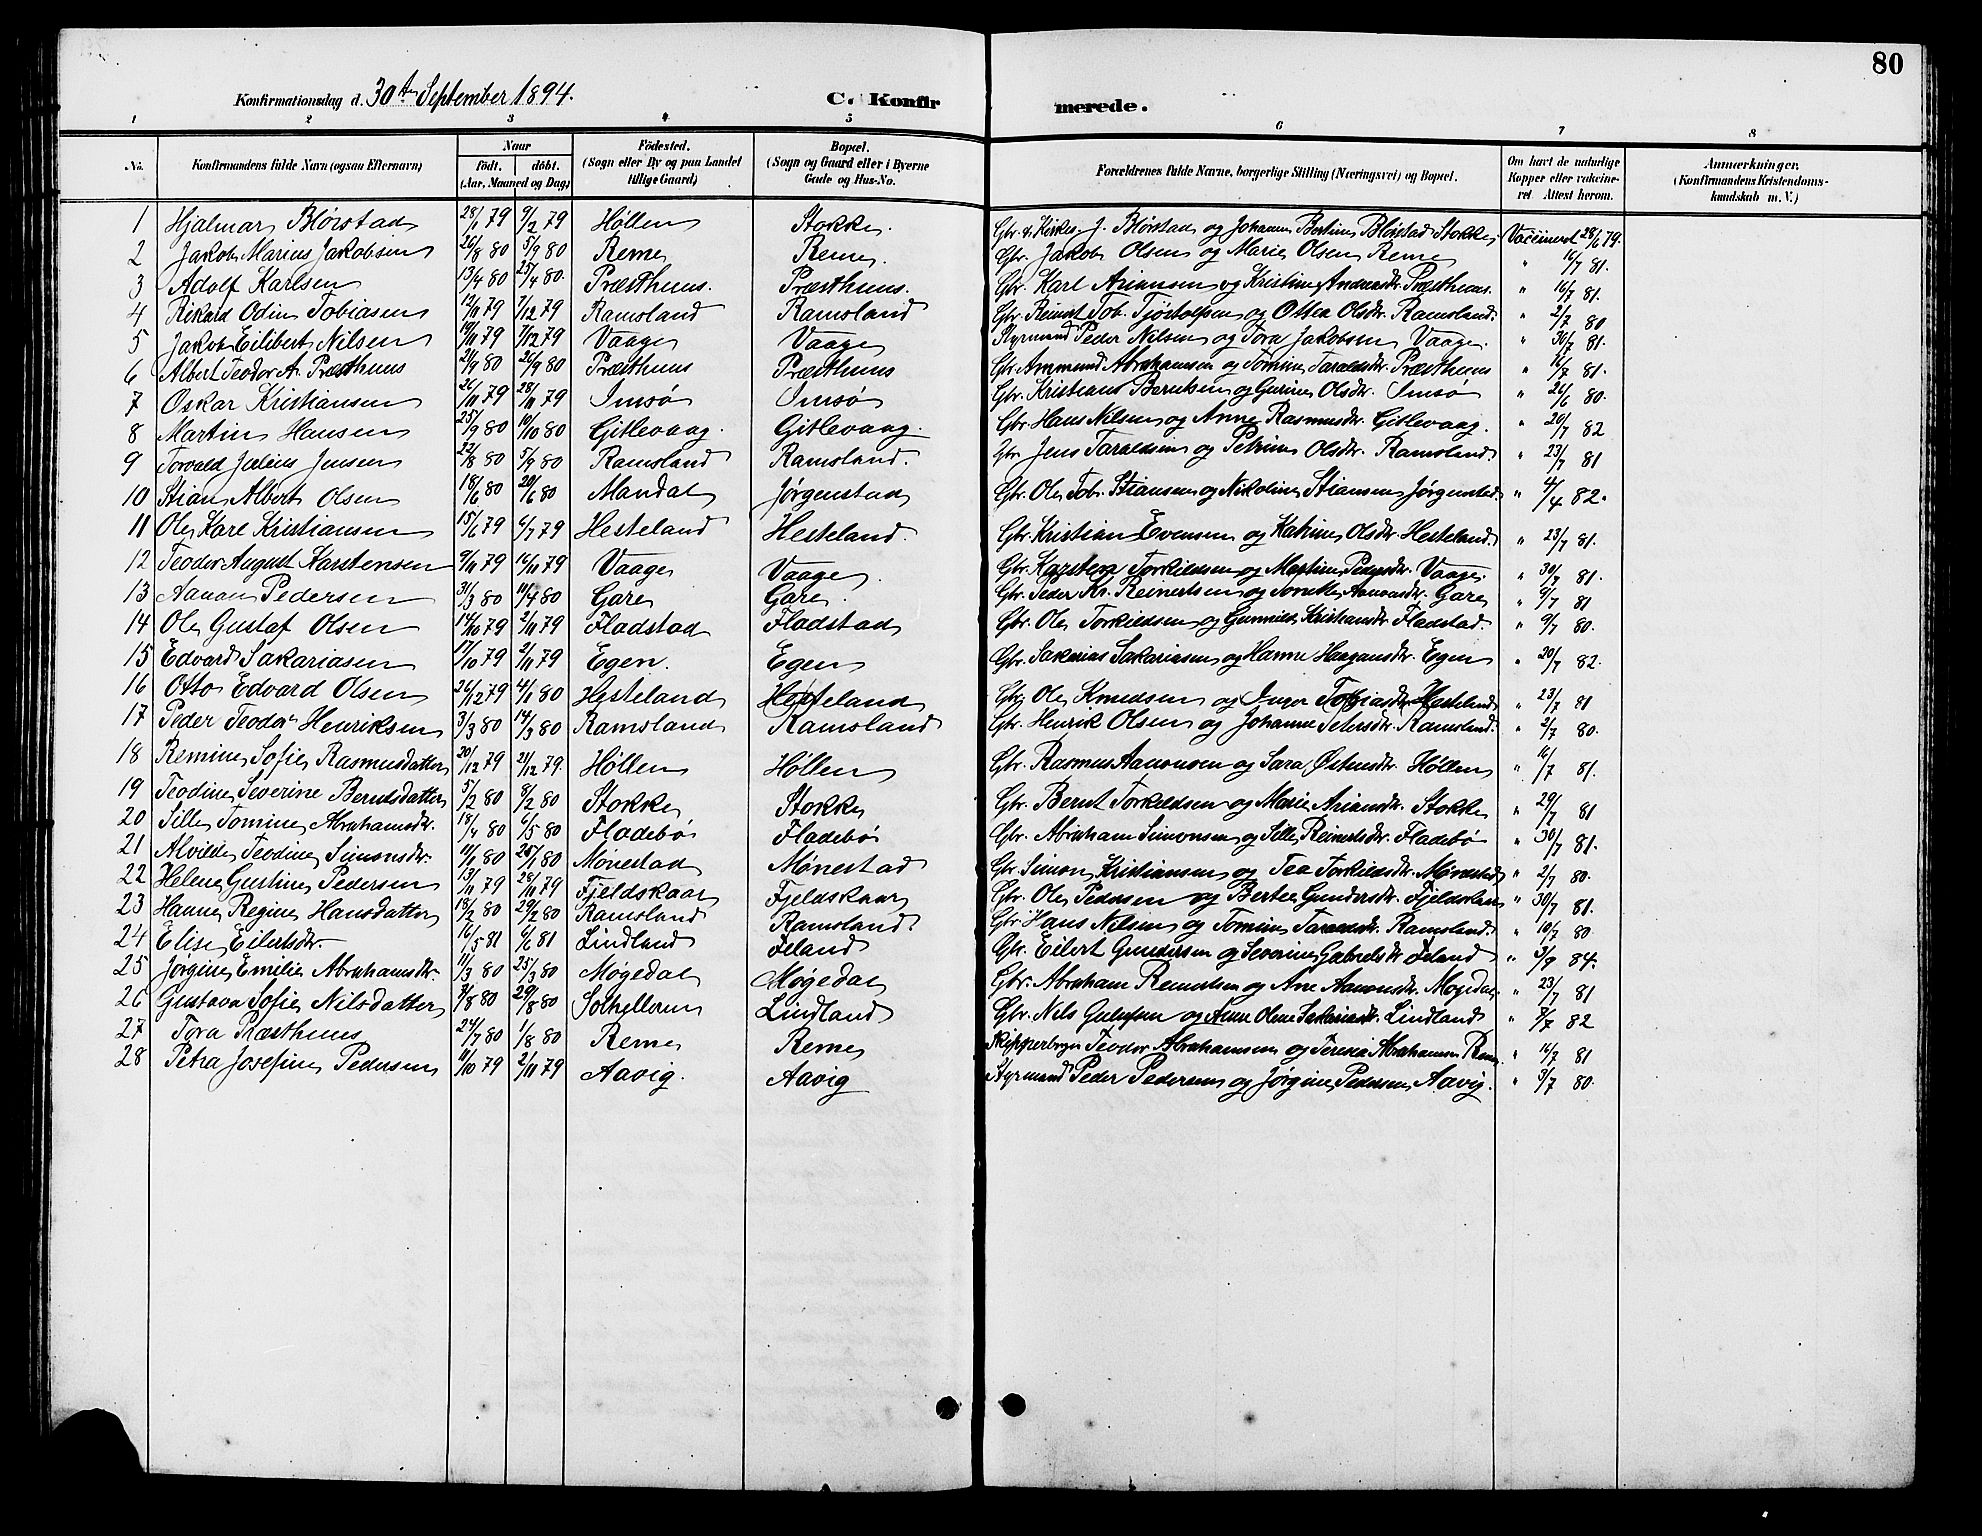 80
Konfirmationsdag d. 30te September 1894. C. Konfir merede.
1 2 3 4 5 6 7 8
No. Konfirmandens fulde Navn (ogsaa Efternavn) Naar født. døbt. (Aar, Maaned og Dag) Födested. (Sogn eller By og paa Landet tillige Gaard) Bopæl. (Sogn og Gaard eller i Byerne Gade og Hus-No. Forældrenes fulde Navne, borgerlige Stilling (Næringsvei) og Bopæl. Om havt de naturlige Kopper eller vakcineret Attest herom. Anmærkninger, (Konfirmandens Kristendomskundskab m. V.)
1 Hjalmar Blørstad 28/1 79 9/2 79 Høllen Stokke. Gbr. & Kirkes. J. Blørstad og Johanne Bertine Blørstad Stokke, Vaccineret 28/6 79.
2 Jakob Marius Jakobsen 26/8 80 5/9 80 Reme Reme. Gbr. Jakob Olsen og Marie Olsen Reme " 16/7 81.
3 Adolf Karlsen 13/4 80 25/4 80. Præsthuus. Præsthuus. Gbr. Karl Ariansen og Kristine Andersdr. Præsthuus. " 16/7 81.
4 Rikard Odin Tobiasen 12/11 79 7/12 79 Ramsland Ramsland Gbr. Reinert Tob. Tjøstolfsen og Ottea Olsdr. Ramsland. " 2/7 80
5 Jakob Eilibert Nilsen 19/11 79 7/12 79 Vaage Vaage Styrmand Peder Nilsen og Tora Jakobsen Vaage. " 30/7 81.
6 Albert Teodor A. Præsthuus 21/9 80 26/9 80 Præsthuus Præsthuus Gbr. Ammund Abrahamsen og Tomine Taraldsdr. Præsthuus " 16/7 81.
7 Oskar Kristiansen 26/11 79 28/11 79 Imsø Imsø Gbr. Kristians Berntsen og Gurine Olsdr. Imsø " 26/6 80.
8 Martin Hansen 25/9 80 10/10 80 Gitlevaag. Gitlevaag. Gbr. Hans Nilsen og Anne Rasmusdr. Gitlevaag. " 20/7 82
9 Torvald Julius Jensen 22/8 80 5/9 80 Ramsland Ramsland. Gbr Jens Taraldsen og Petrine Olsdr. Ramsland. " 23/7 81
10 Stian Albert Olsen 18/6 80 20/6 80 Mandal Jørgenstad Gbr. Ole Tob. Stiansen og Nikoline Stiansen Jørgenstad " 4/4 82.
11 Ole Karl Kristiansen 15/6 79 6/7 79 Hesteland Hesteland. Gbr. Kristian Evensen og Katrine Olsdr. Hesteland. " 23/7 81.
12 Teodor August Karstensen 9/11 79 16/11 79 Vaage Vaage. Gbr. Karsten Torkildsen og Martine Pedersdr. Vaage. " 30/7 81.
13 Aanon Pedersen 31/3 80 11/4 80 Gare Gare. Gbr. Peder Kr. Reinertsen og Tomke Aanonsdr. Gare " 9/7 81
14 Ole Gustaf Olsen 14/10 79 2/11 79 Fladstad Fladstad Gbr. Ole Torkildsen og Gunnild Kristiansdr. Fladstad. " 9/7 80.
15 Edvard Sakariasen 17/10 79 2/11 79 Egen. Egen Gbr. Sakarias Sakariasen og Hanne Haagansdr. Egen " 20/7 82.
16 Otto Edvard Olsen 26/12 79 4/1 80 Hesteland Hesteland Gbr. Ole Knudsen og Inger Tobiasdr. Hesteland " 23/7 81
17 Peder Teodor Henriksen 3/3 80 14/3 80 Ramsland Ramsland Gbr. Henrik Olsen og Johanne Petersdr. Ramsland. " 2/7 80.
18 Remine Sofie Rasmusdatter 20/12 79 21/12 79. Høllen Høllen Gbr. Rasmus Aanonsen og Sara Østensdr. Høllen " 16/7 81.
19 Teodine Severine Berntsdatter 5/2 80 8/2 80 Stokke Stokke Gbr. Bernt Torkildsen og Marie Ariansdr. Stokke " 29/7 81
20 Sille Tomine Abrahamsdr. 18/4 80 6/5 80 Fladebø Fladebø Gbr. Abraham Simonsen og Sille Reinertsdr. Fladebø " 30/7 81.
21 Alvilde Teodine Simonsdr. 11/1 80 25/1 80 Mønestad Mønestad Gbr. Simon Kristiansen og Tea Torkildsdr. Mønestad " 2/7 80.
22 Helene Gustine Pedersen 13/11 79 28/11 79 Fjeldskaar Fjeldskaar Gbr. Ole Pedersen og Bertee Gundersdr. Fjeldskaar " 30/7 81.
23 Hanne Regine Hansdatter 18/2 80 29/2 80 Ramsland Ramsland Gbr. Hans Nilsen og Tomine Taraldsdr. Ramsland. " 10/7 80.
24 Elise Eilertsdr. 16/5 81 6/6 81 Lindland Ieland Gbr. Eilert Gundersen og Severine Gabrielsdr. Ieland " 3/9 84.
25 Jørgine Emilie Abrahamsdr. 11/3 80 25/3 80 Møgedal Møgedal Gbr. Abraham Reinertsen og Ane Aanonsdr. Møgedal " 23/7 81
26 Gustava Sofie Nilsdatter 3/8 80 29/8 80 Lindland Gbr. Nils Gulufsen og Anne Olene Sakariasdr. Lindland " 3/7 82
27 Tora Præsthuus 24/7 80 1/8 80 Reme Reme Skipperborger Teodor Abrahamsen og Teresia Abrahamsen Reme. " 16/7 81
28 Petra Josefine Pedersen 11/10 79 2/11 79 Aavig. Aavig Styrmand Peder Pedersen og Jørgine Pedersen Aavig. " 3/7 80.